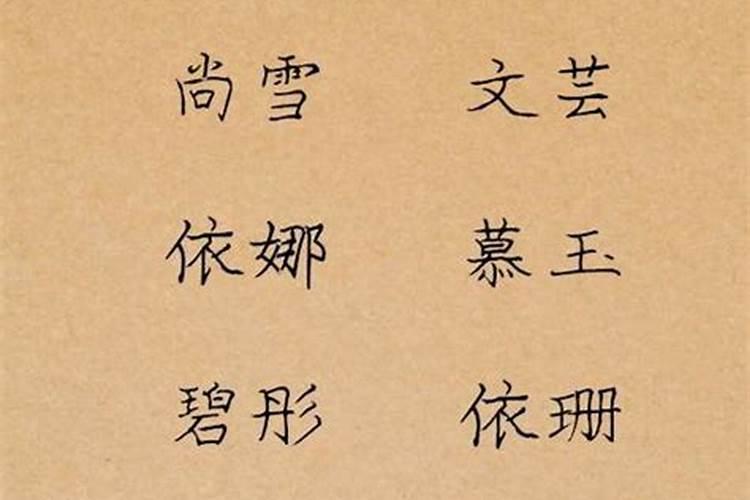 尚雪 文芸
依娜 慕玉
碧彤 依珊